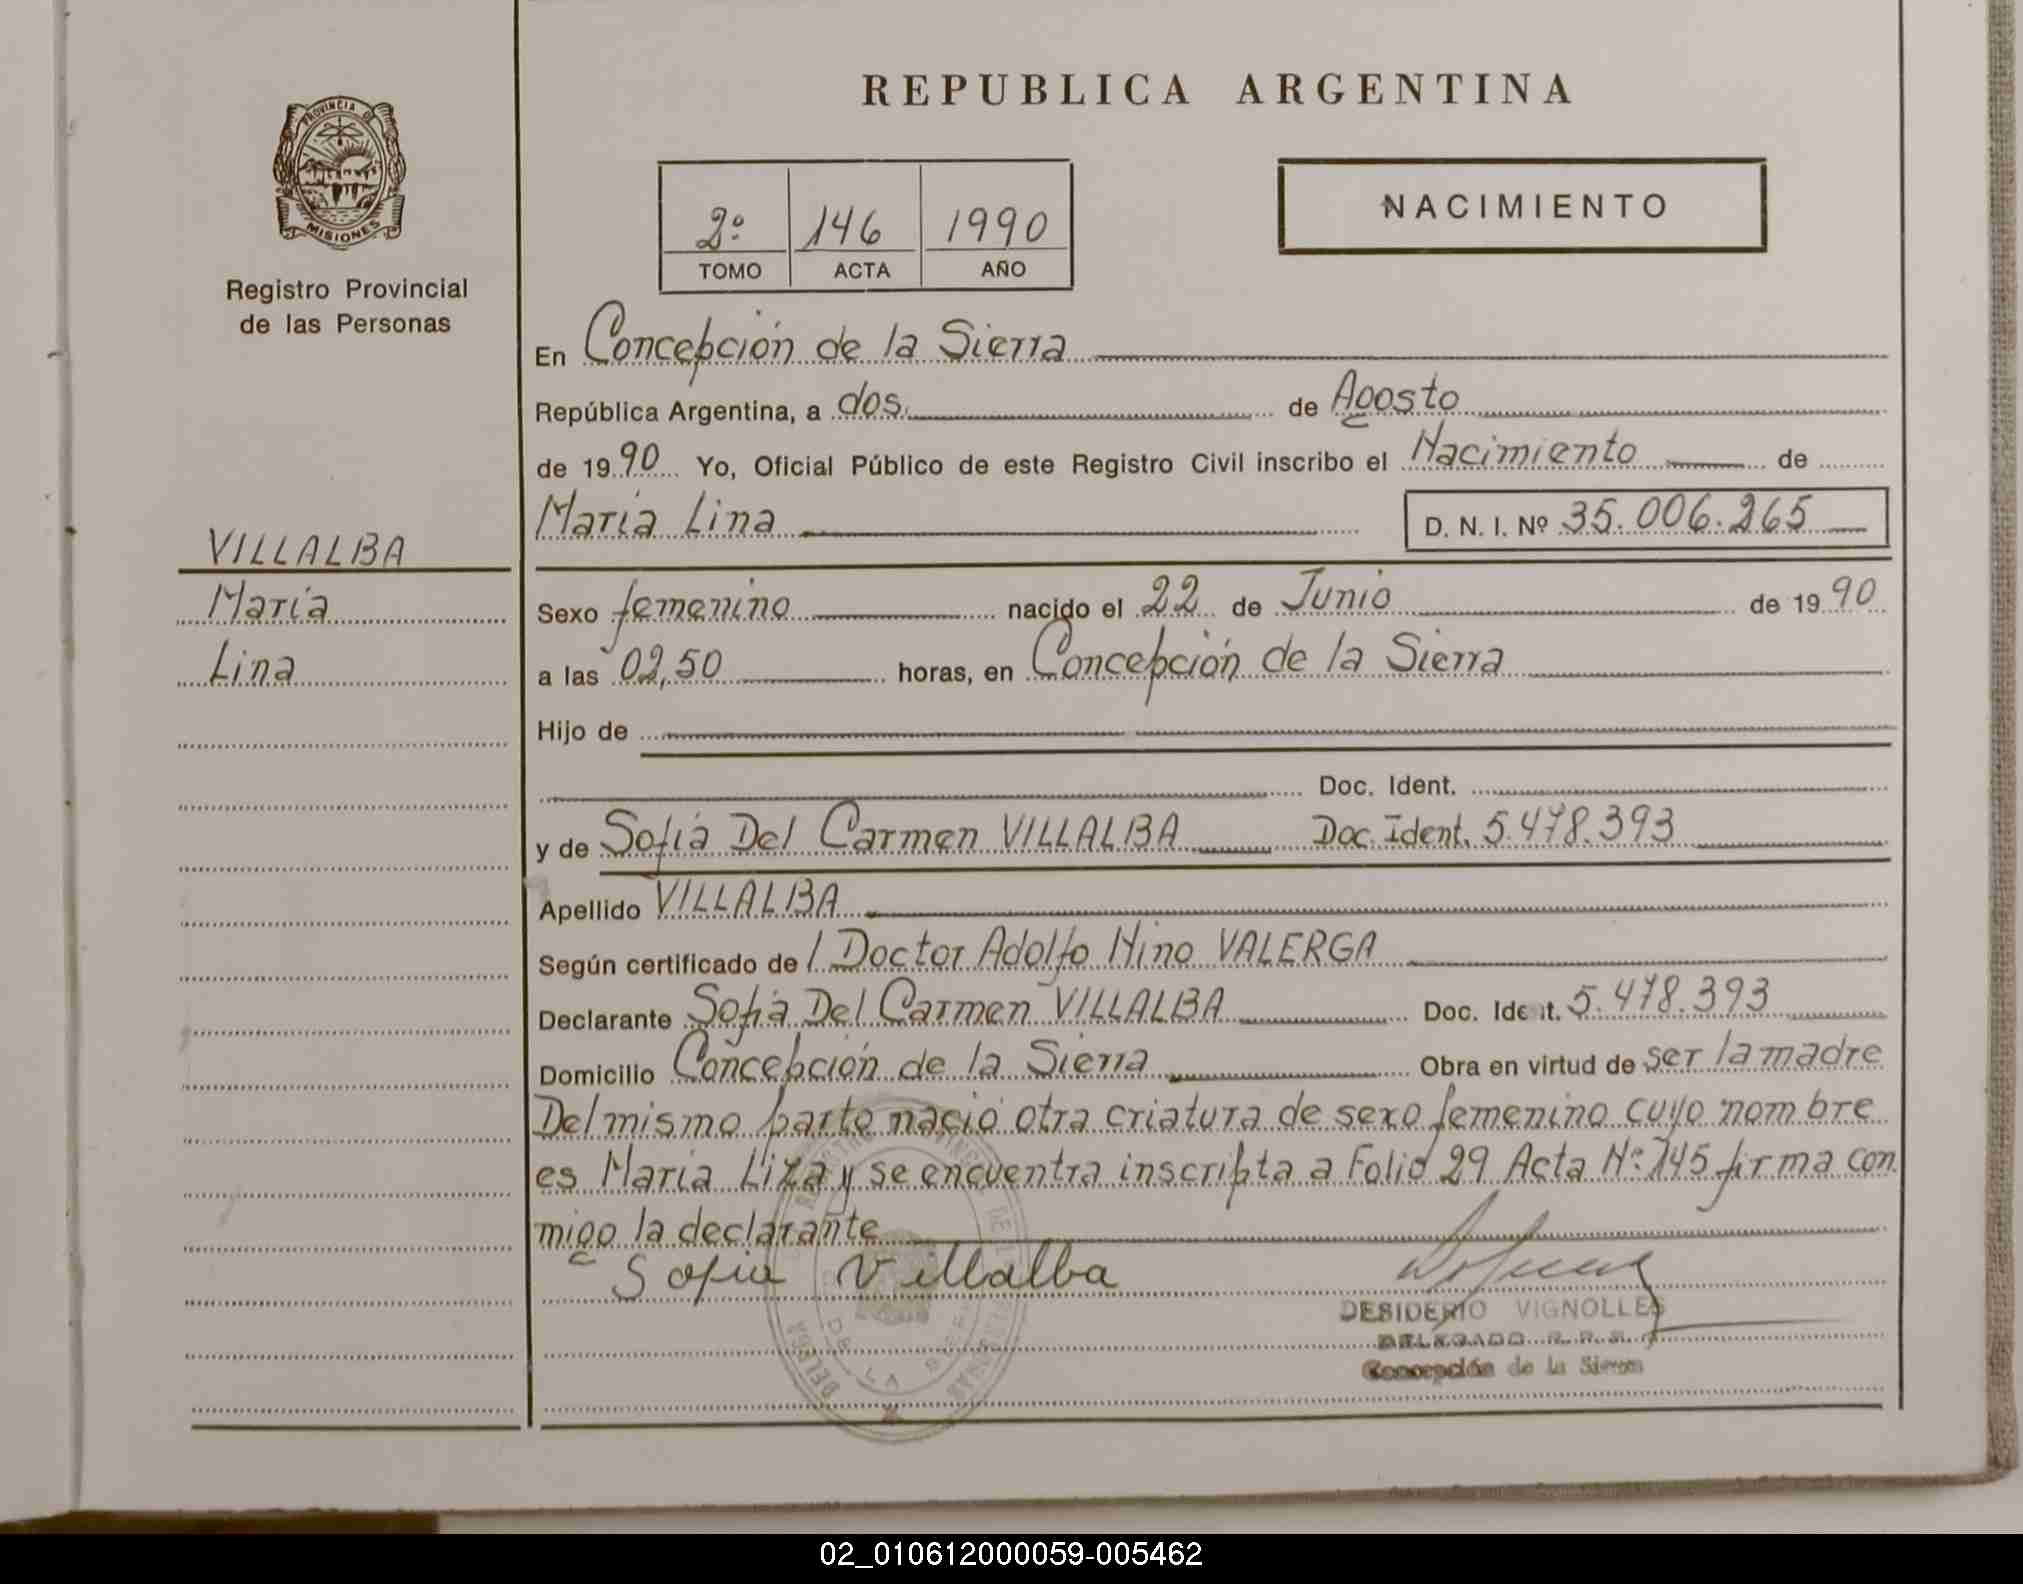 REPUBLICA ARGENTINA
PROVINCIA DE
MISIONES
Registro Provincial
de las Personas
2º 146 1990
TOMO ACTA AÑO
NACIMIENTO
En Concepción de la Sierra
República Argentina, a dos. de Agosto
de 1990 Yo, Oficial Público de este Registro Civil inscribo el Nacimiento de
María Lina
D. N. I. Nº 35.006.265
VILLALBA
María
Lina
Sexo femenino nacido el 22 de Junio de 1990
a las 02,50 horas, en Concepción de la Sierra
Hijo de
Doc. Ident.
y de Sofía Del Carmen VILLALBA Doc. Ident. 5.478.393
Apellido VILLALBA
Según certificado de l Doctor Adolfo Nino VALERGA
Declarante Sofía Del Carmen VILLALBA Doc. Ident. 5.478.393
Domicilio Concepción de la Sierra Obra en virtud de ser la madre
Del mismo parto nació otra criatura de sexo femenino cuyo nombre
es María Liza y se encuentra inscripta a Folio 29 Acta Nº 145 firma con
migo la declarante
Sofia Villalba
DESIDERIO VIGNOLLES
DELEGADO R. P. P.
Concepción de la Sierra
DE LA
02_010612000059-005462